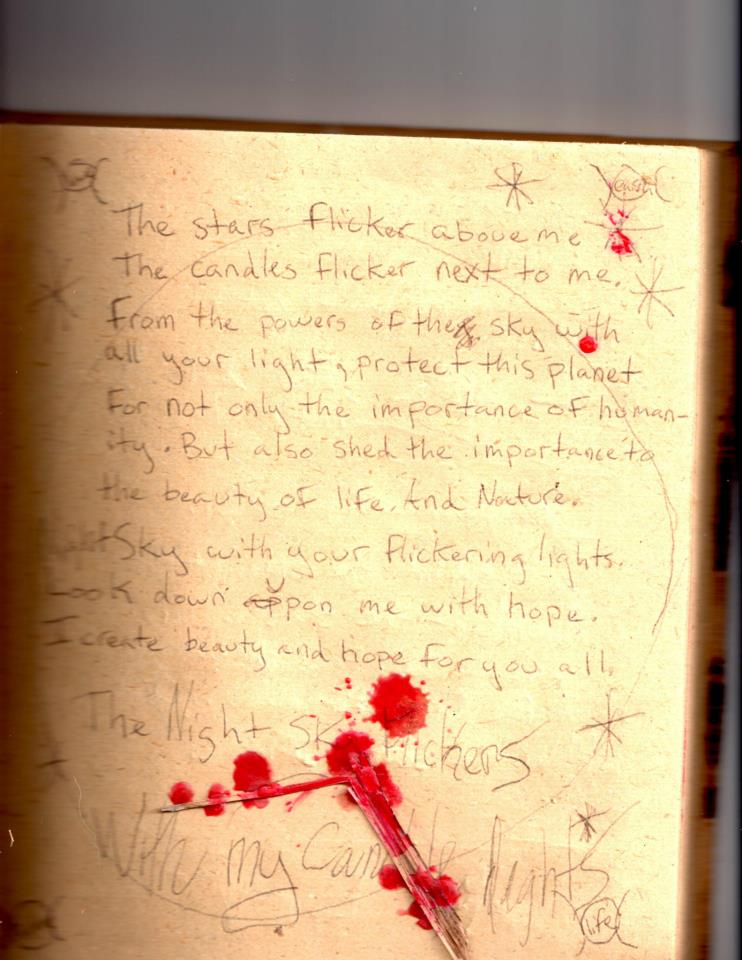 earth
The stars flicker above me
The candles flicker next to me.
From the powers of the sky with
all your light, protect this planet
For not only the importance of human-
ity. But also shed the importance to
the beauty of life. And Nature.
Sky with your flickering lights.
Look down Uppon me with hope.
I create beauty and hope for you all.
The Night Sky flickers
With my Candle lights
life